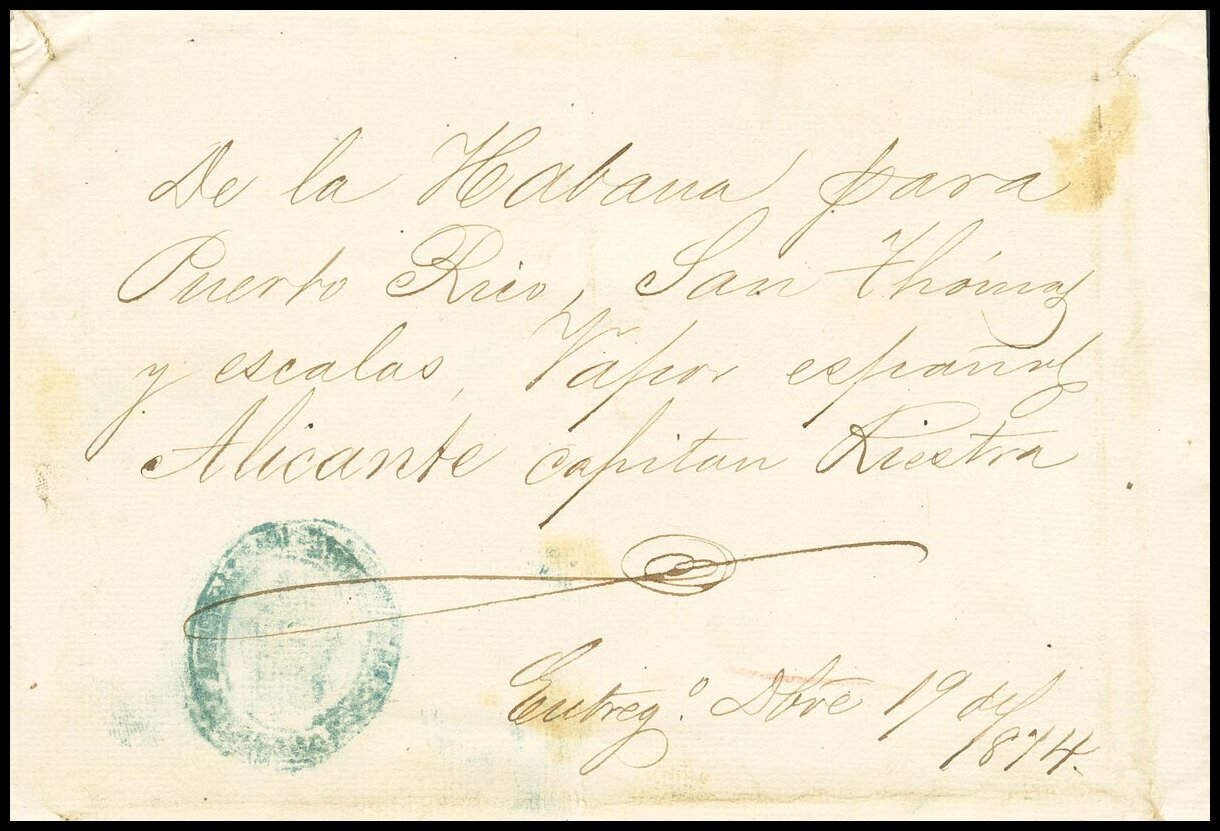 De la Habana para
Puerto Rico, San Thómas
y escalas, Vapor español
Alicante capitan Riestra
Entreg.º Dbre 19 del
1874.